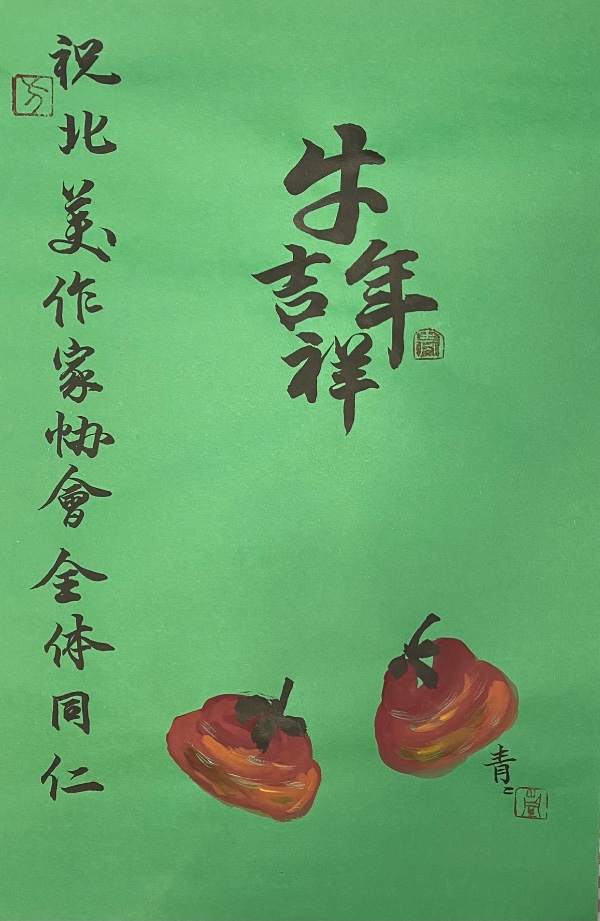 牛年
吉祥
祝北美作家协會全体同仁
青二